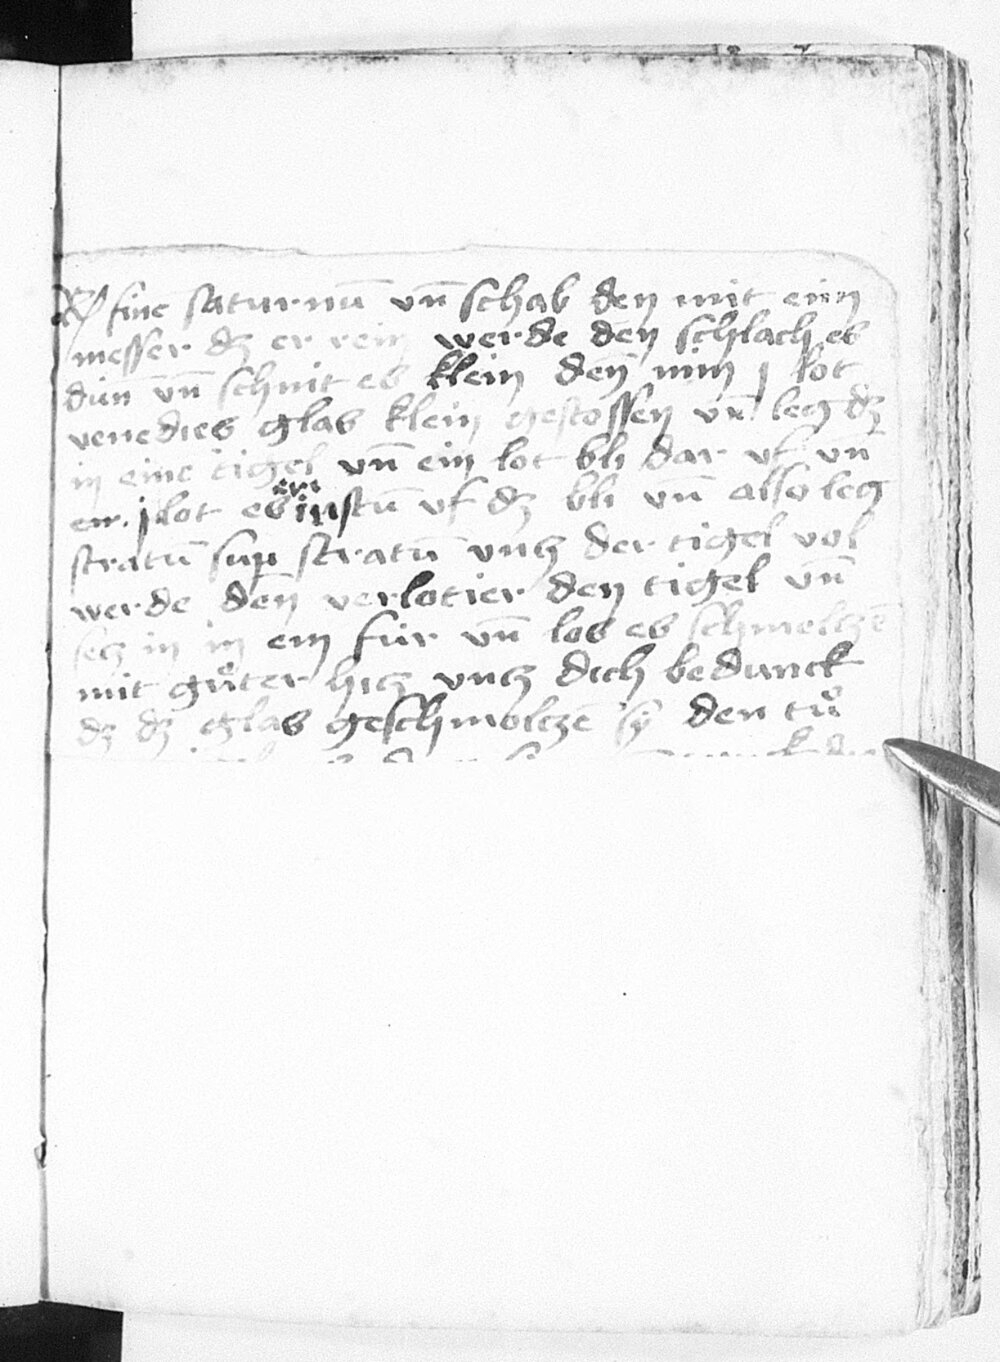 Rp fine saturnū vn̄ schab den mit einn
messer dz er rein werde den schlach es
dün vn̄ schnit es klein deñ nim j lot
venedies glas klein gestossen vn̄ leg dz
in eine tigel vn̄ ein lot bli dar vf vn̄
ein j lot es vf dz bli vn̄ also leg
stratū sup stratū vntz der tigel vol
werde deñ verlotier den tigel vn̄
setz in in ein für vn̄ los es schmeltzē
mit gůter hitz vntz dich bedunck
dz dz glas geschmoltzē sÿ den tů